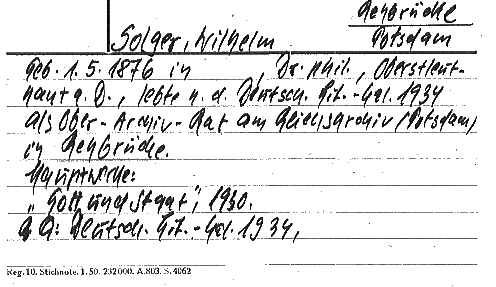 Rehbrücke
Potsdam
Solger, Wilhelm
Geb. 1. 5. 1876 in , Dr. phil., Oberstleut-
nant a. D., lebte n. d. Deutsch. Lit.-Kal. 1934
als Ober-Archiv-Rat am Reichsarchiv (Potsdam)
in Rehbrücke.
Hauptwerke:
„Gott und Staat", 1930.
a Q: Deutsch. Lit.-Kal. 1934,
Reg. 10. Stichnote. 1. 50. 232000. A. 803. S. 4062